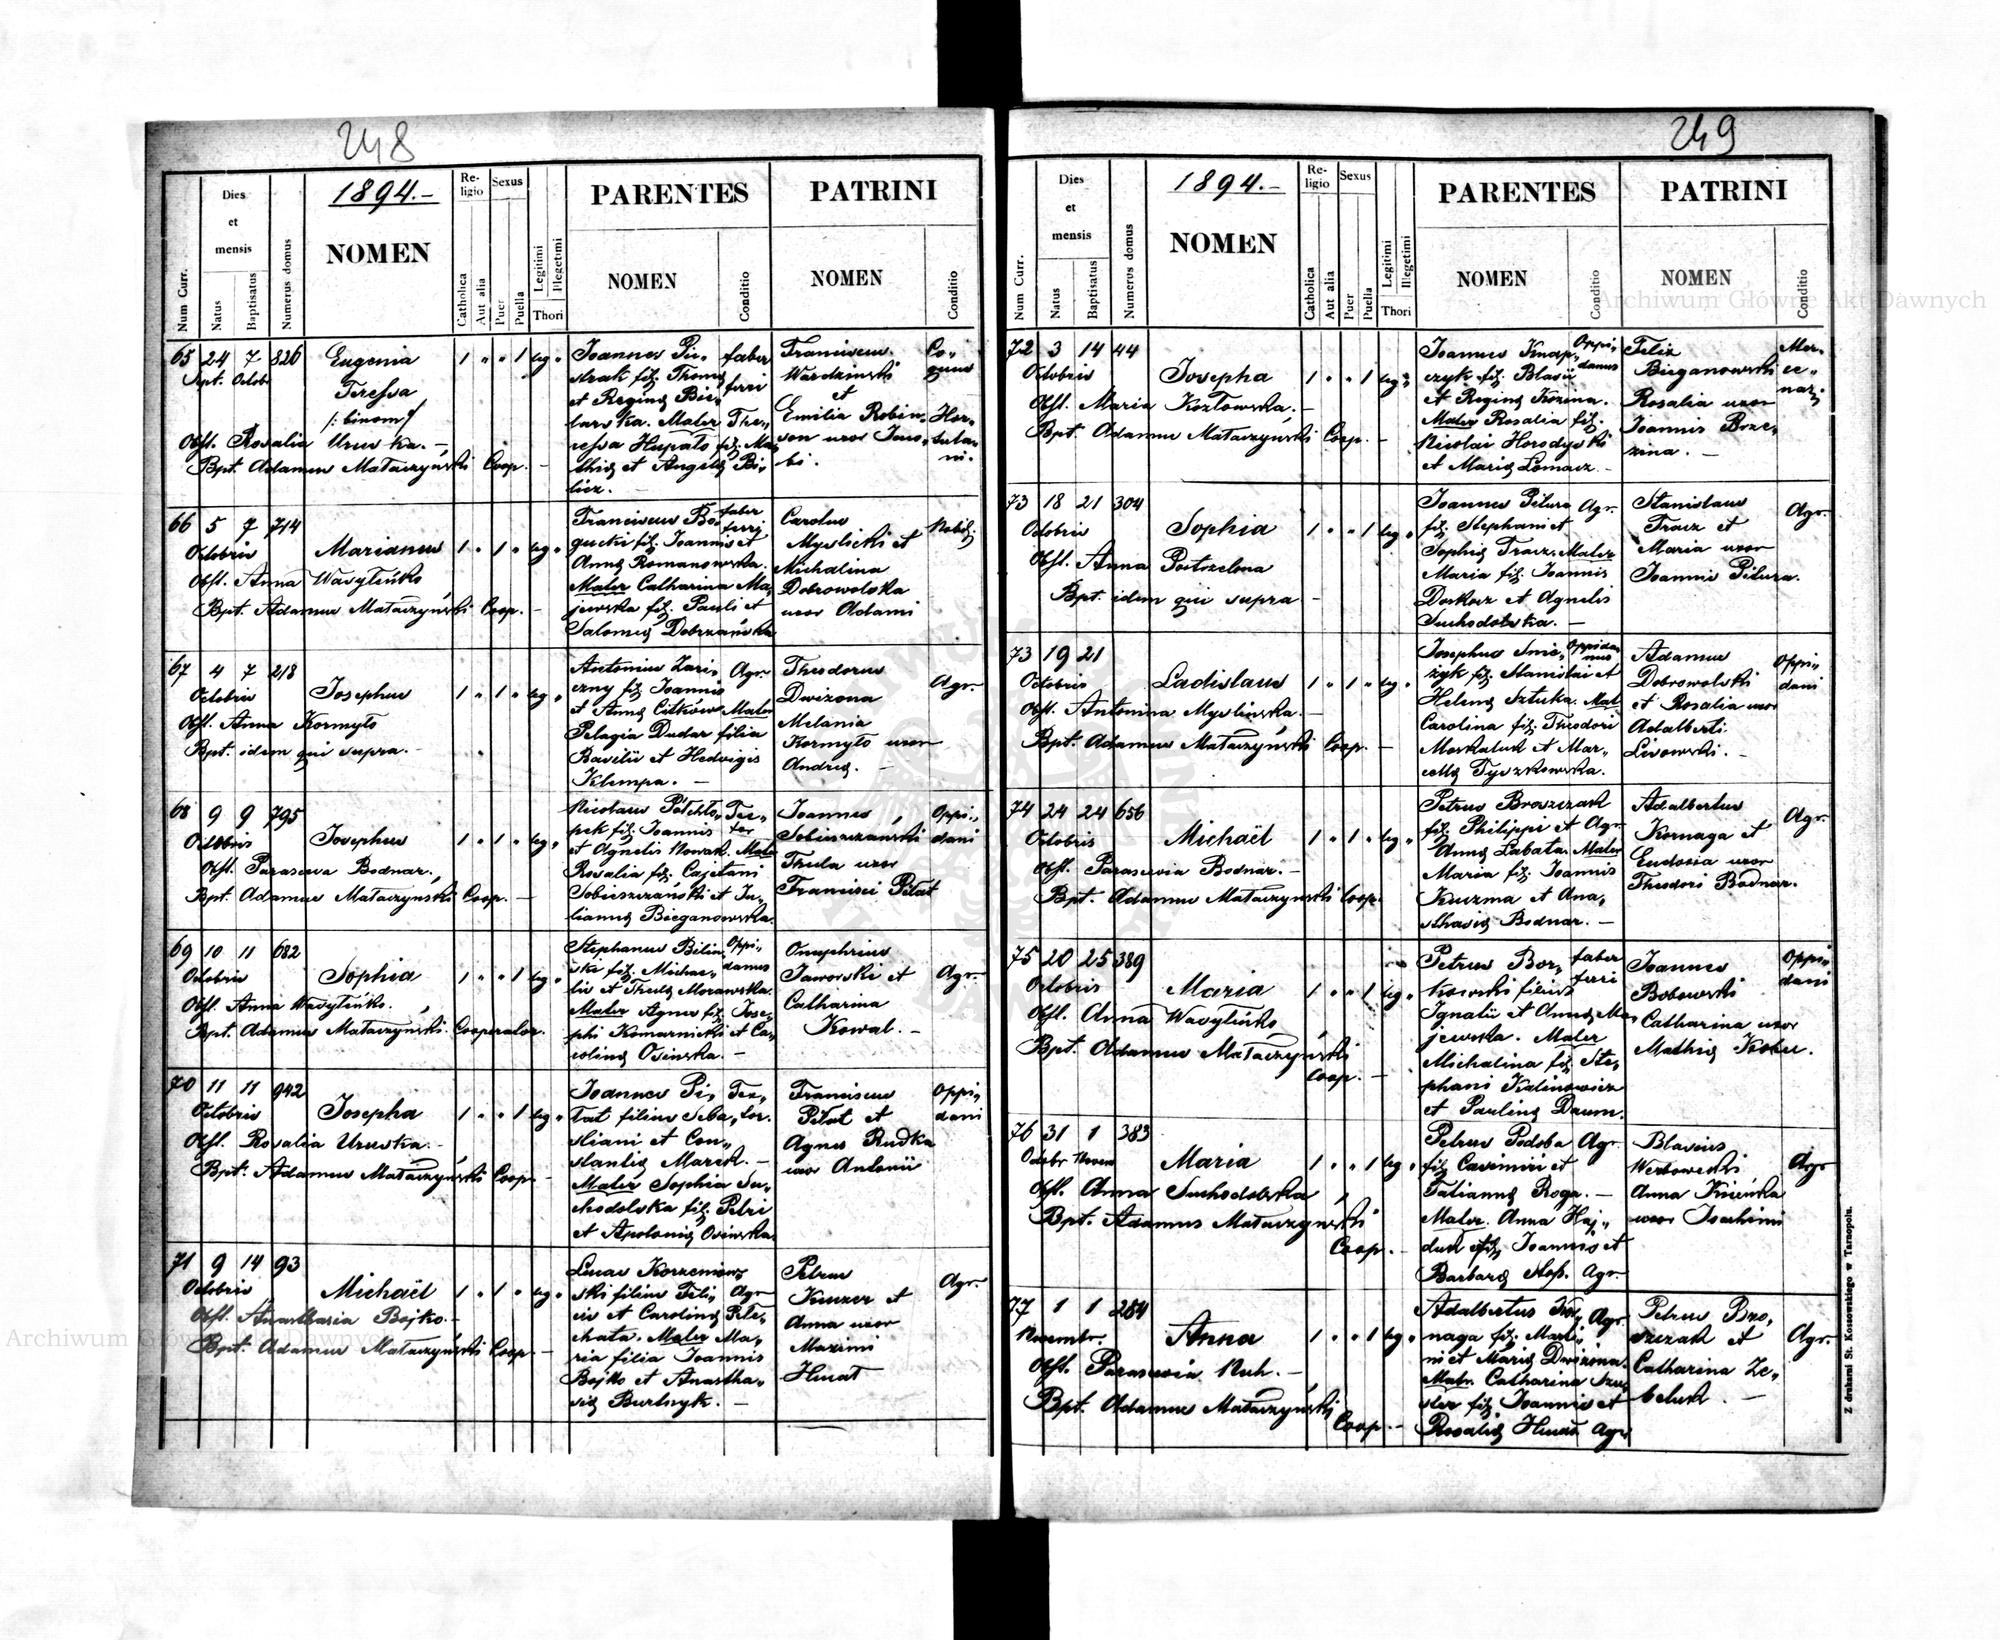 248
Num Curr.
Dies
et
mensis
Natus
Baptisatus
Numerus domus
1894.-
NOMEN
Re-
ligio
Catholica
Aut alia
Sexus
Puer
Puella
Legitimi
Illegetimi
Thori
PARENTES
NOMEN
Conditio
PATRINI
NOMEN
Conditio
65 24 7 826
Sept. Octobr
Eugenia
Teressa
/: binom/
1 " " 1 leg "
Obst. Rosalia Uruska. -
Bpt. Adamus Mataczyński Coop. -
Joannes Pi-
strak fil. Thomę
et Reginę Bie-
larska. Mater The-
ressa Hupało fil. Ma-
thię et Angelę Bi-
licz.
faber
ferri
Franciscus
Wardzinski
et
Emilia Robin-
son uxor Jaco-
bi.
Co-
quus
Hor-
tula-
ni.
66 5 7 714
Octobris
Marianus
1 " 1 " leg "
Obst. Anna Wasyleńko
Bpt. Adamus Mataczyński Coop. -
Franciscus Bo-
gucki fil. Joannis et
Annę Romanowska.
Mater Catharina Ma-
jewska fil. Pauli et
Salomeę Dobrzańska
faber
ferri
Carolus
Myslicki et
Michalina
Dobrowolska
uxor Adami
Nobil.
67 4 7 218
Octobris
Josephus
1 " 1 " leg "
Obst. Anna Kormyło
Bpt. idem qui supra. -
Antonius Zari-
czny fil. Joannis
et Annę Citków Mater
Pelagia Dudar filia
Basilii et Hedvigis
Klempa. -
Agr.
Theodorus
Dwizona
Melania
Kormyło uxor
Andreę. -
Agr.
68 9 9 795
Octobris
Josephus
1 " 1 " leg "
Obst. Parasceva Bodnar.
Bpt. Adamus Mataczynski Coop. -
Nicolaus
fil. Joannis
et Agnetis Nowak. Mater
Rosalia fil. Cajetani
Sobieszczański et Ju-
liannę Bieganowska.
Joannes
Sobieszczański
Thecla uxor
Francisci Piłat
Oppi-
dani
69 10 11 682
Octobris
Sophia
1 " " 1 leg "
Obst. Anna Wasyleńko.
Bpt. Adamus Mataczyński. Cooperator.
Stephanus Bilin-
ski fil. Michae-
lis et Theclę Morawska.
Mater Agnes fil. Jose-
phi Komarnicki et Ca-
rolinę Osinska. -
Oppi-
danus
Onuphrius
Jaworski et
Catharina
Kowal. -
Agr.
70 11 11 942
Octobris
Josepha
1 " " 1 leg "
Obst. Rosalia Uruska. -
Bpt. Adamus Mataczyński Coop -
Joannes Pi-
łat filius Seba-
stiani et Con-
stantię Marek. -
Mater Sophia Su-
chodolska fil. Petri
et Apolonię Osinska
Franciscus
Piłat et
Agnes Rudka
uxor Antonii
Oppi-
dani
71 9 14 93
Octobris
Michaël
1 " 1 " leg "
Obst. Anasthasia Bojko. -
Bpt. Adamus Mataczyński Coop -
Lucas Korzeniow-
ski filius Feli-
cis et Carolinę Pele-
chata. Mater Ma-
ria filia Joannis
Bojko et Anastha-
się Burlnyk. -
Agr
Petrus
Kuczer et
Anna uxor
Maximi
Hnat
Agr.
249
Num Curr.
Dies
et
mensis
Natus
Baptisatus
Numerus domus
1894.-
NOMEN
Re-
ligio
Catholica
Aut alia
Sexus
Puer
Puella
Legitimi
Illegetimi
Thori
PARENTES
NOMEN
Conditio
PATRINI
NOMEN
Conditio
72 3 14 44
Octobris
Josepha
1 " " 1 leg "
Obst. Maria Kozłowska. -
Bpt. Adamus Mataczyński Coop. -
Joannes Knap-
czyk fil. Blasii
et Reginę Kozina.
Mater Rosalia fil.
Nicolai Horodyski
et Marię Lomacz. -
Oppi-
danus
Felix
Bieganowski
Rosalia uxor
Joannis Brze-
zina. -
Mer-
ce-
narj
73 18 21 304
Octobris
Sophia
1 " " 1 leg "
Obst. Anna Postrzelona
Bpt. idem qui supra -
Joannes Pitura
fil. Stephani et
Sophię Tracz. Mater
Maria fil. Joannis
Doskocz et Agnetis
Suchodolska. -
Agr.
Stanislaus
Tracz et
Maria uxor
Joannis Pitura.
Agr.
73 19 21
Octobris
Ladislaus
1 " 1 " leg "
Obst. Antonina Myslinska. -
Bpt. Adamus Mataczyński Coop. -
fil. Stanislai et
Helenę Sztuka. Mat
Carolina fil. Theodori
Moskaluk et Mar-
cellę Tyczkowska.
Oppida-
nus
Adamus
Dobrowolski
et Rosalia uxor
Adalberti
Lwowski. -
Oppi-
dani
74 24 24 656
Octobris
Michaël
1 " 1 " leg "
Obst. Parascevia Bodnar. -
Bpt. Adamus Mataczyński Coop.
Petrus Broszczak
fil. Philippi et Agr.
Annę Labata. Mater
Maria fil. Joannis
Kuczma et Ana-
sthasię Bodnar. -
Adalbertus
Kornaga et
Eudosia uxor
Theodori Bodnar.
Agr.
75 20 25 389
Octobris
Maria
1 " " 1 leg "
Obst. Anna Wasyleńko
Bpt. Adamus Mataczyński
Coop. -
Petrus Bor-
kowski filius
Ignatii et Annę Ma-
jewska. Mater
Michalina fil. Ste-
phani Kalinowicz
et Paulinę Daum.
faber
ferri
Joannes
Bobowski
Catharina uxor
Mathię Kober.
Oppi-
dani
76 31 1 383
Octobr Novem
Maria
1 " " 1 leg "
Obst. Anna Suchodolska
Bpt. Adamus Mataczyński
Coop. -
Petrus Podoba Agr.
fil. Casimiri et
Tatiannę Roga. -
Mater. Anna Haj-
duk fil. Joannis et
Barbarę Stop. Agr.
Blasius
Werbowecki
Anna
uxor Joachimi
Agr
77 1 1 284
Novembr.
Anna
1 " " 1 leg "
Obst. Parascevia Nuh. -
Bpt. Adamus Mataczyński
Coop. -
Adalbertus Kor-
naga fil. Marti-
ni et Marię Dwizona.
Mater. Catharina Szu-
ster fil. Joannis et
Rosalię Hnat Agr
Agr
Petrus Bro-
szczak et
Catharina Ze-
beluk -
Agr.
Z drukarni St. Kossowskiego w Tarnopolu.
Archiwum Główne Akt Dawnych
Archiwum Główne Akt Dawnych